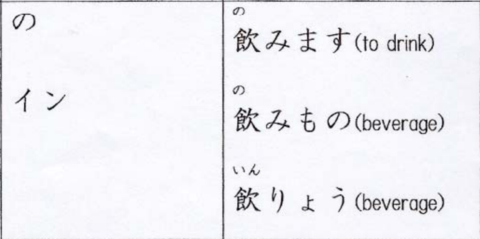 の
飲みます(to drink)
の
イン
の
飲みもの(beverage)
いん
飲りょう(beverage)